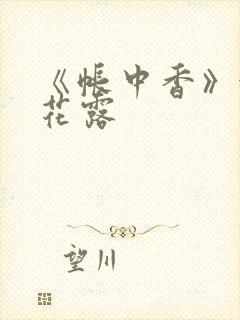 《帐中香》
花露
望川